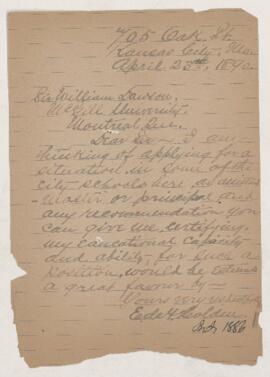 705 Oak St.
Kansas City, Mo.
April 25th, 1890.
Sir William Dawson,
McGill University,
Montreal, Que.
Dear Sir — I am
thinking of applying for a
situation in some of the
city schools here, as assistant
master or principal and
any recommendation you
can give me, certifying
my educational capacity
and ability, for such a
position, would be esteemed
a great favour by —
Yours very respectfully
Holden
1886